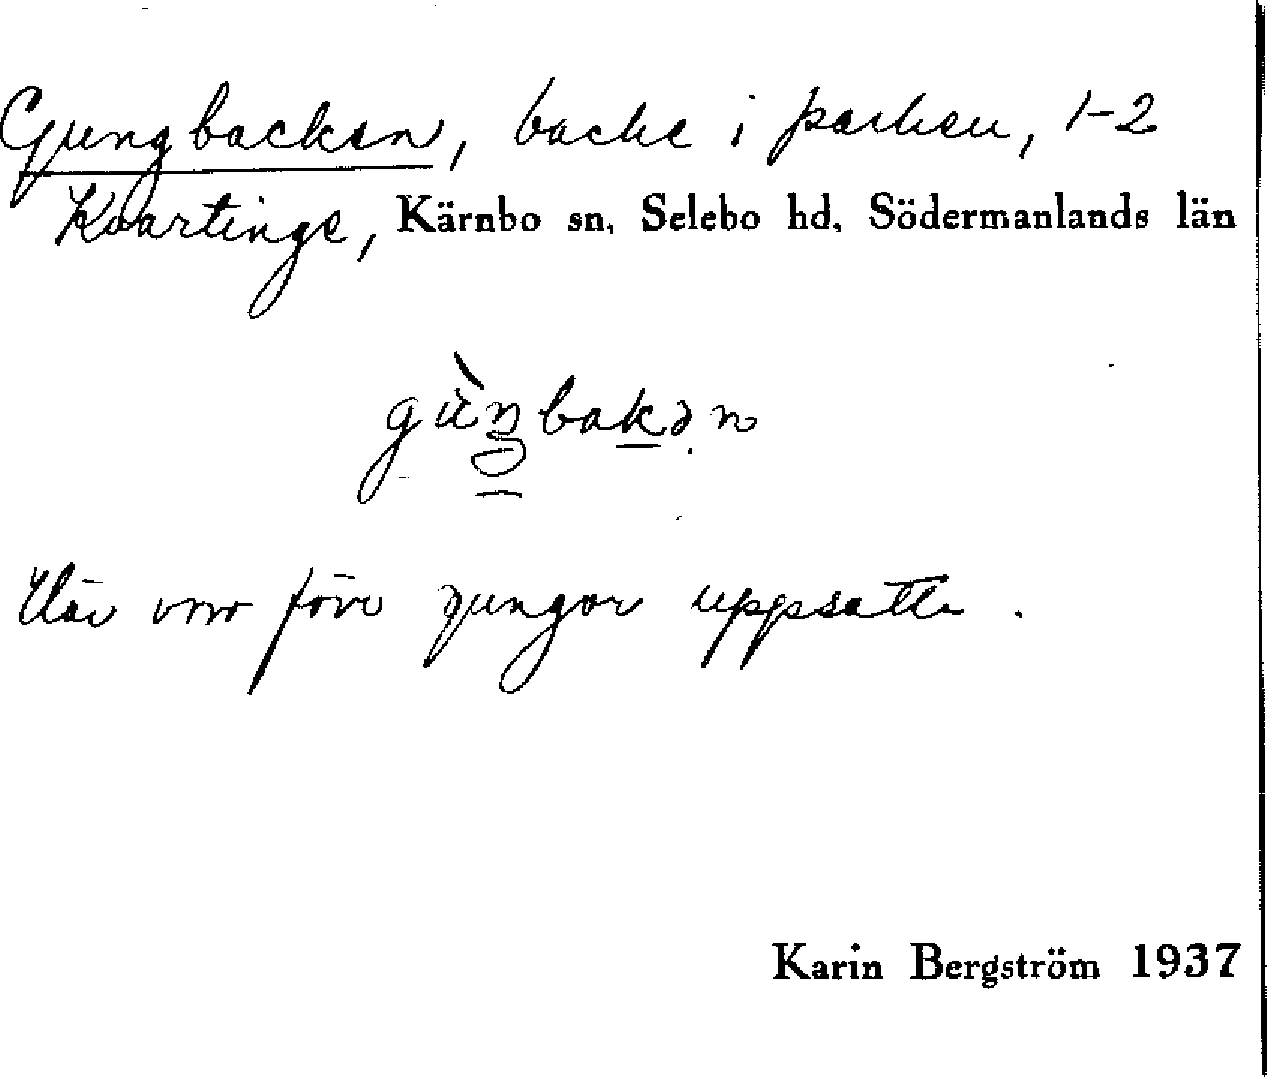 Gungbacken, backe i parken, 1-2
Kvartinge, Kärnbo sn, Selebo hd, Södermanlands län
gùŋbakən
Här voro förr gungor uppsatta.
Karin Bergström 1937